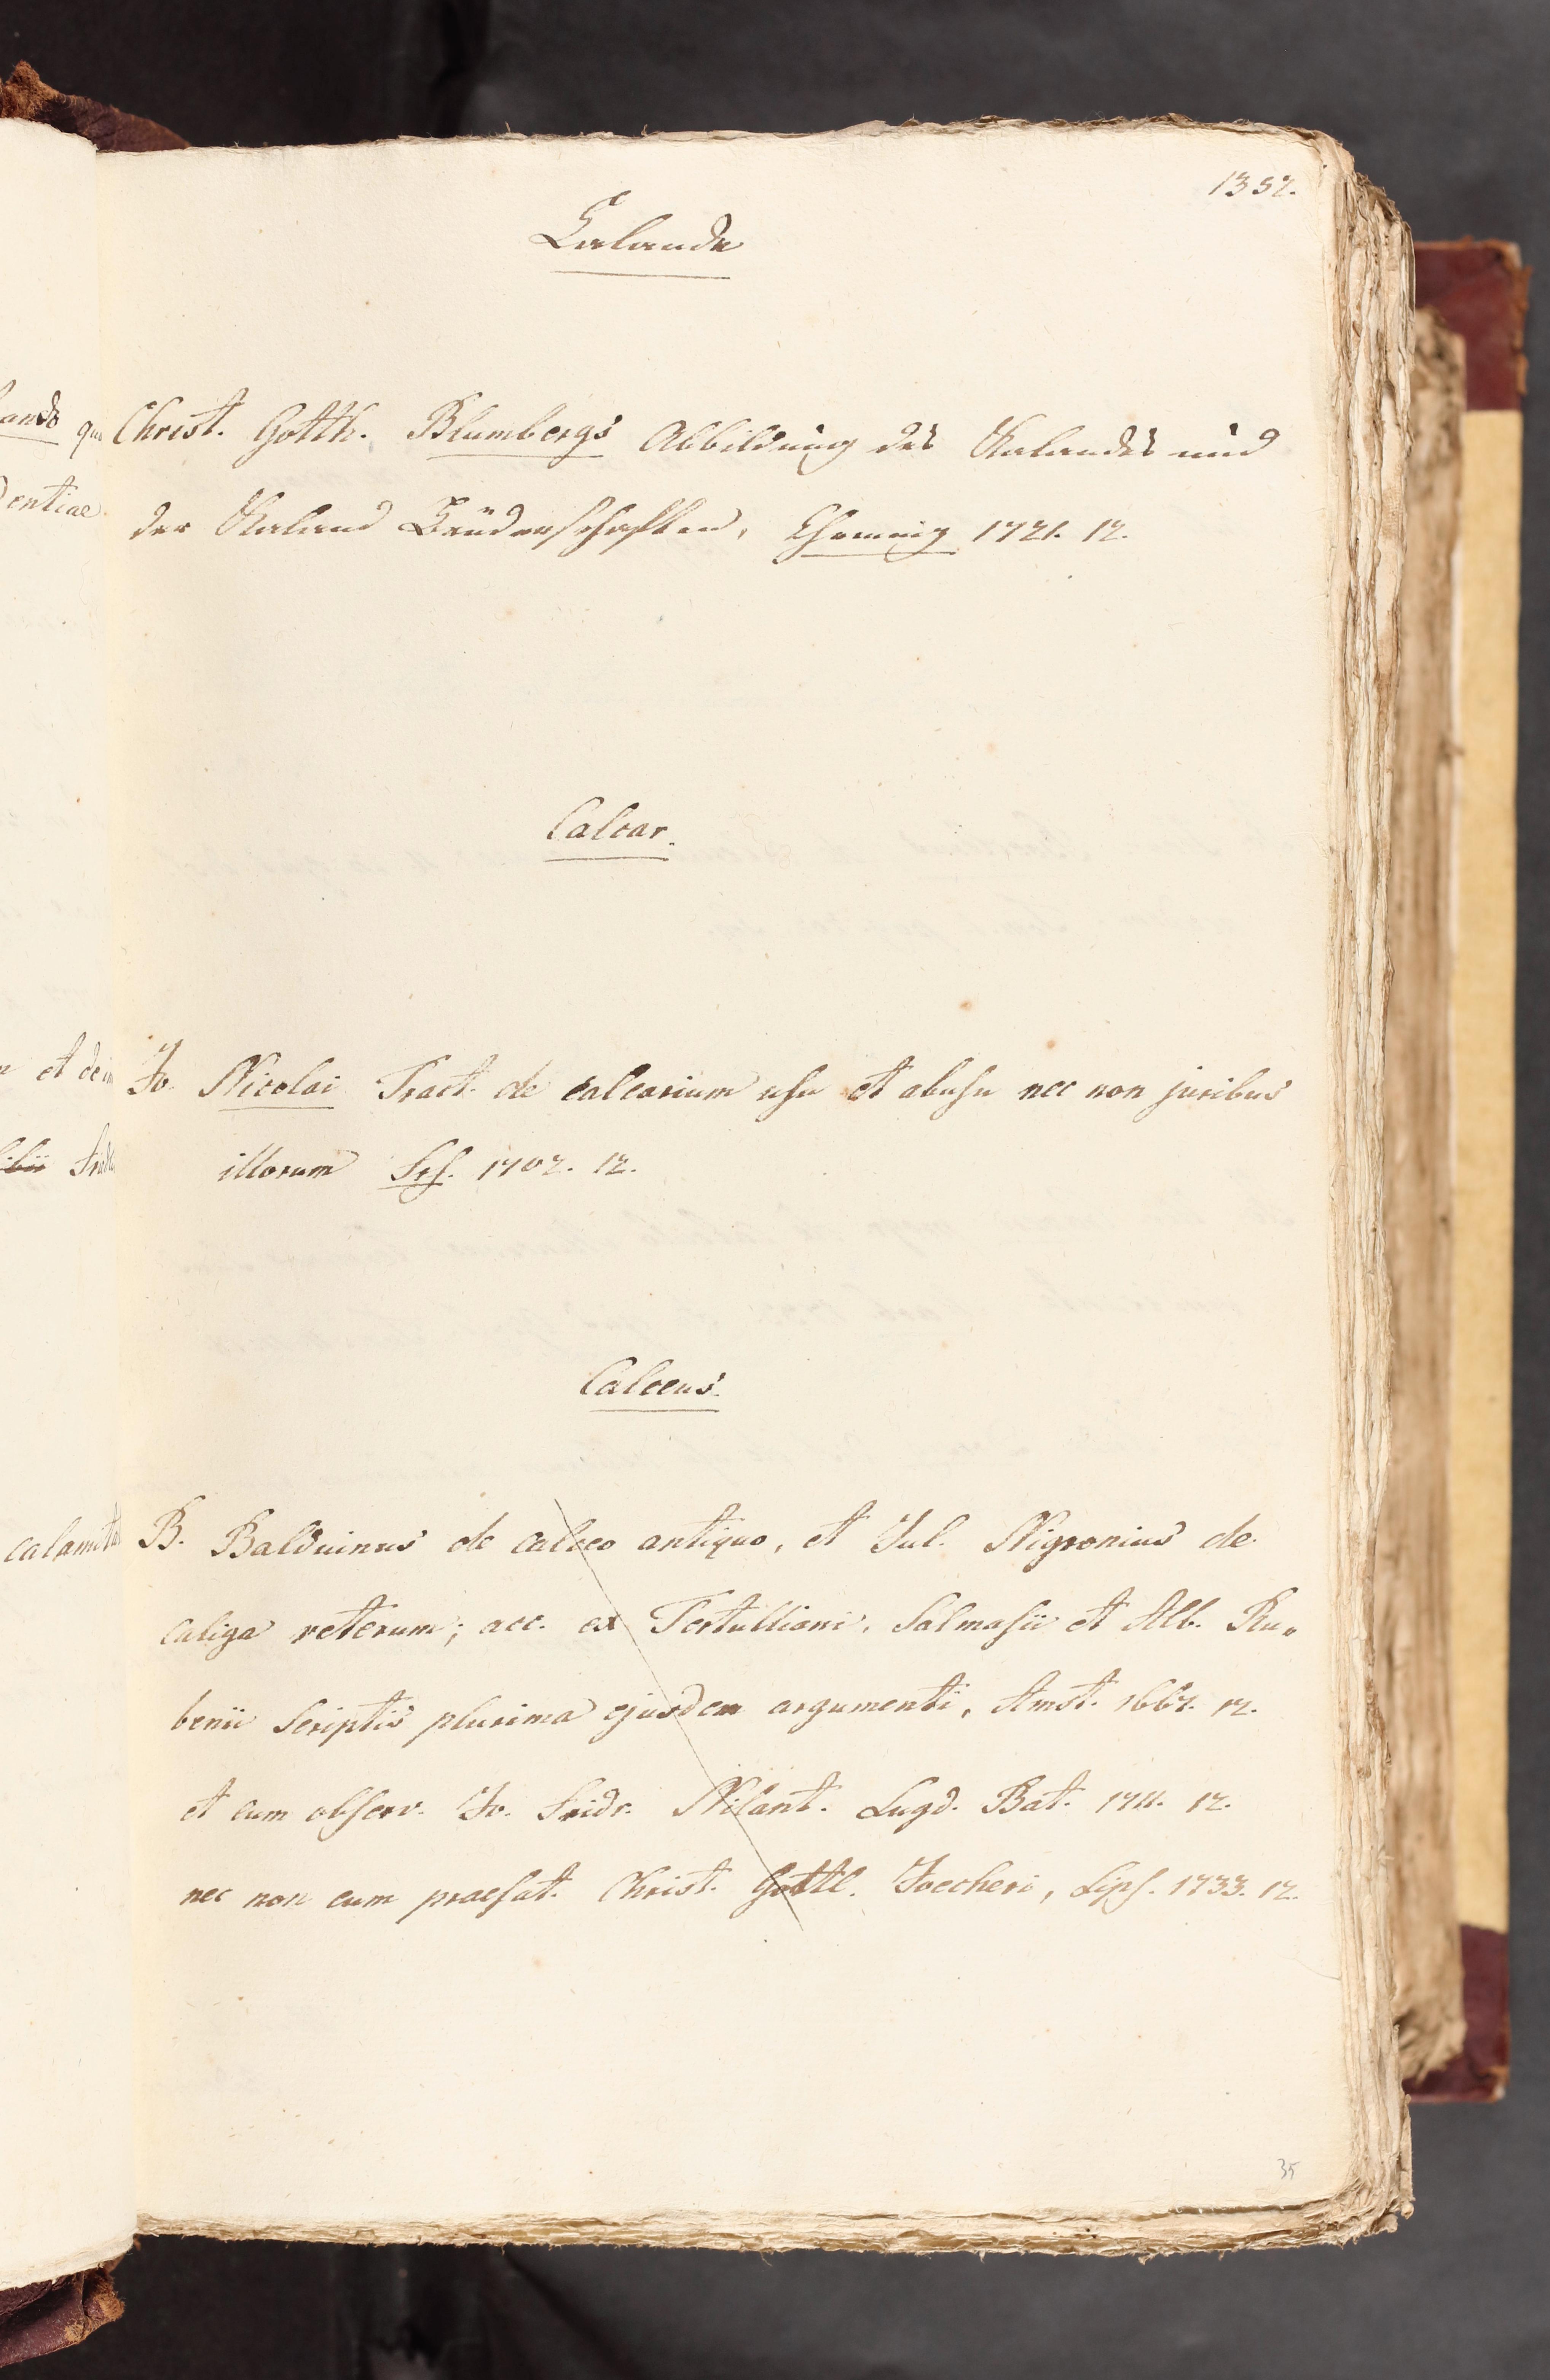 1352.
Calande
Christ. Gotth. Blumbergs Abbildung des Kalandes und
der Kaland Brüderschafften, Chemniz 1721. 12.
Calcar.
Jo. Nicolai Tract. de calcarium usu et abusu nec non juribus
illorum Frf. 1702. 12.
Calceus.
B. Balduinus de calceo antiquo, et Jul. Nigronius de
caliga veterum; acc. ex Tertulliani, Salmasii et Alb. Ru„
benii Scriptis plurima ejusdem argumenti, Amst. 1667. 12.
et cum observ. Jo. Fridr. Nilant. Lugd. Bat. 1711. 12.
nec non cum praefat. Christ. Gottl. Joecheri, Lips. 1733. 12.
35